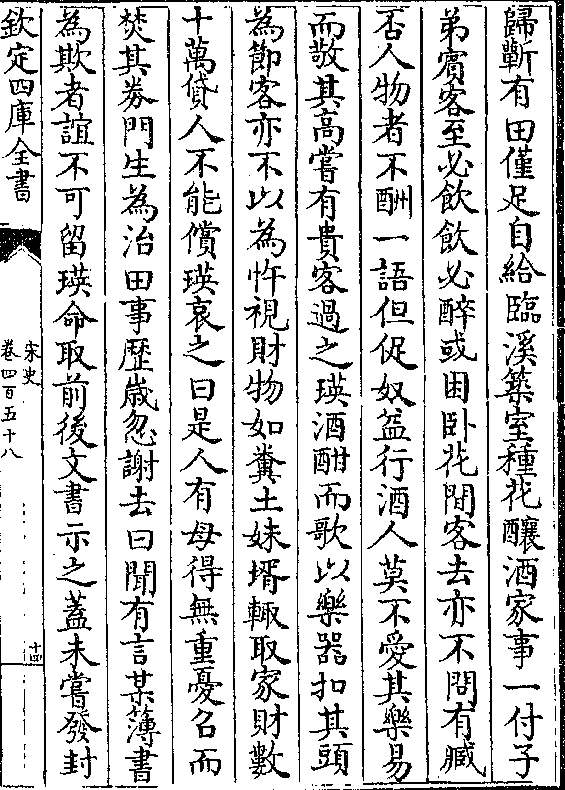 歸蘄有田僅足自給臨溪築室種花釀酒家事一付子
弟賓客至必飲飲必醉或困卧花間客去亦不問有臧
否人物者不酬一語但促奴益行酒人莫不愛其樂易
而敬其高嘗有貴客過之瑛酒酣而歌以樂器扣其頭
為節客亦不以為忤視財物如糞土妹壻輒取家財數
十萬貸人不能償瑛哀之曰是人有母得無重憂名而
焚其劵門生為治田事歴歳忽謝去曰聞有言某簿書
為欺者誼不可留瑛命取前後文書示之蓋未嘗發封
欽定四庫全書
宋史
卷四百五十八
十四